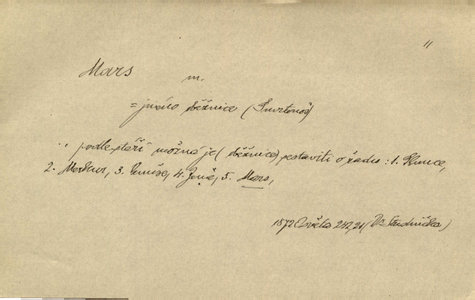 11
Mars m.
= jméno oběžnice (Smrtonoš)
„ podle stáří možná je (oběžnice) postaviti v řadu: 1. Slunce,
2. Merkur, 3. Venuše, 4. Země, 5. Mars,
1872 Osvěta 212,21 (Dr. Studnička)